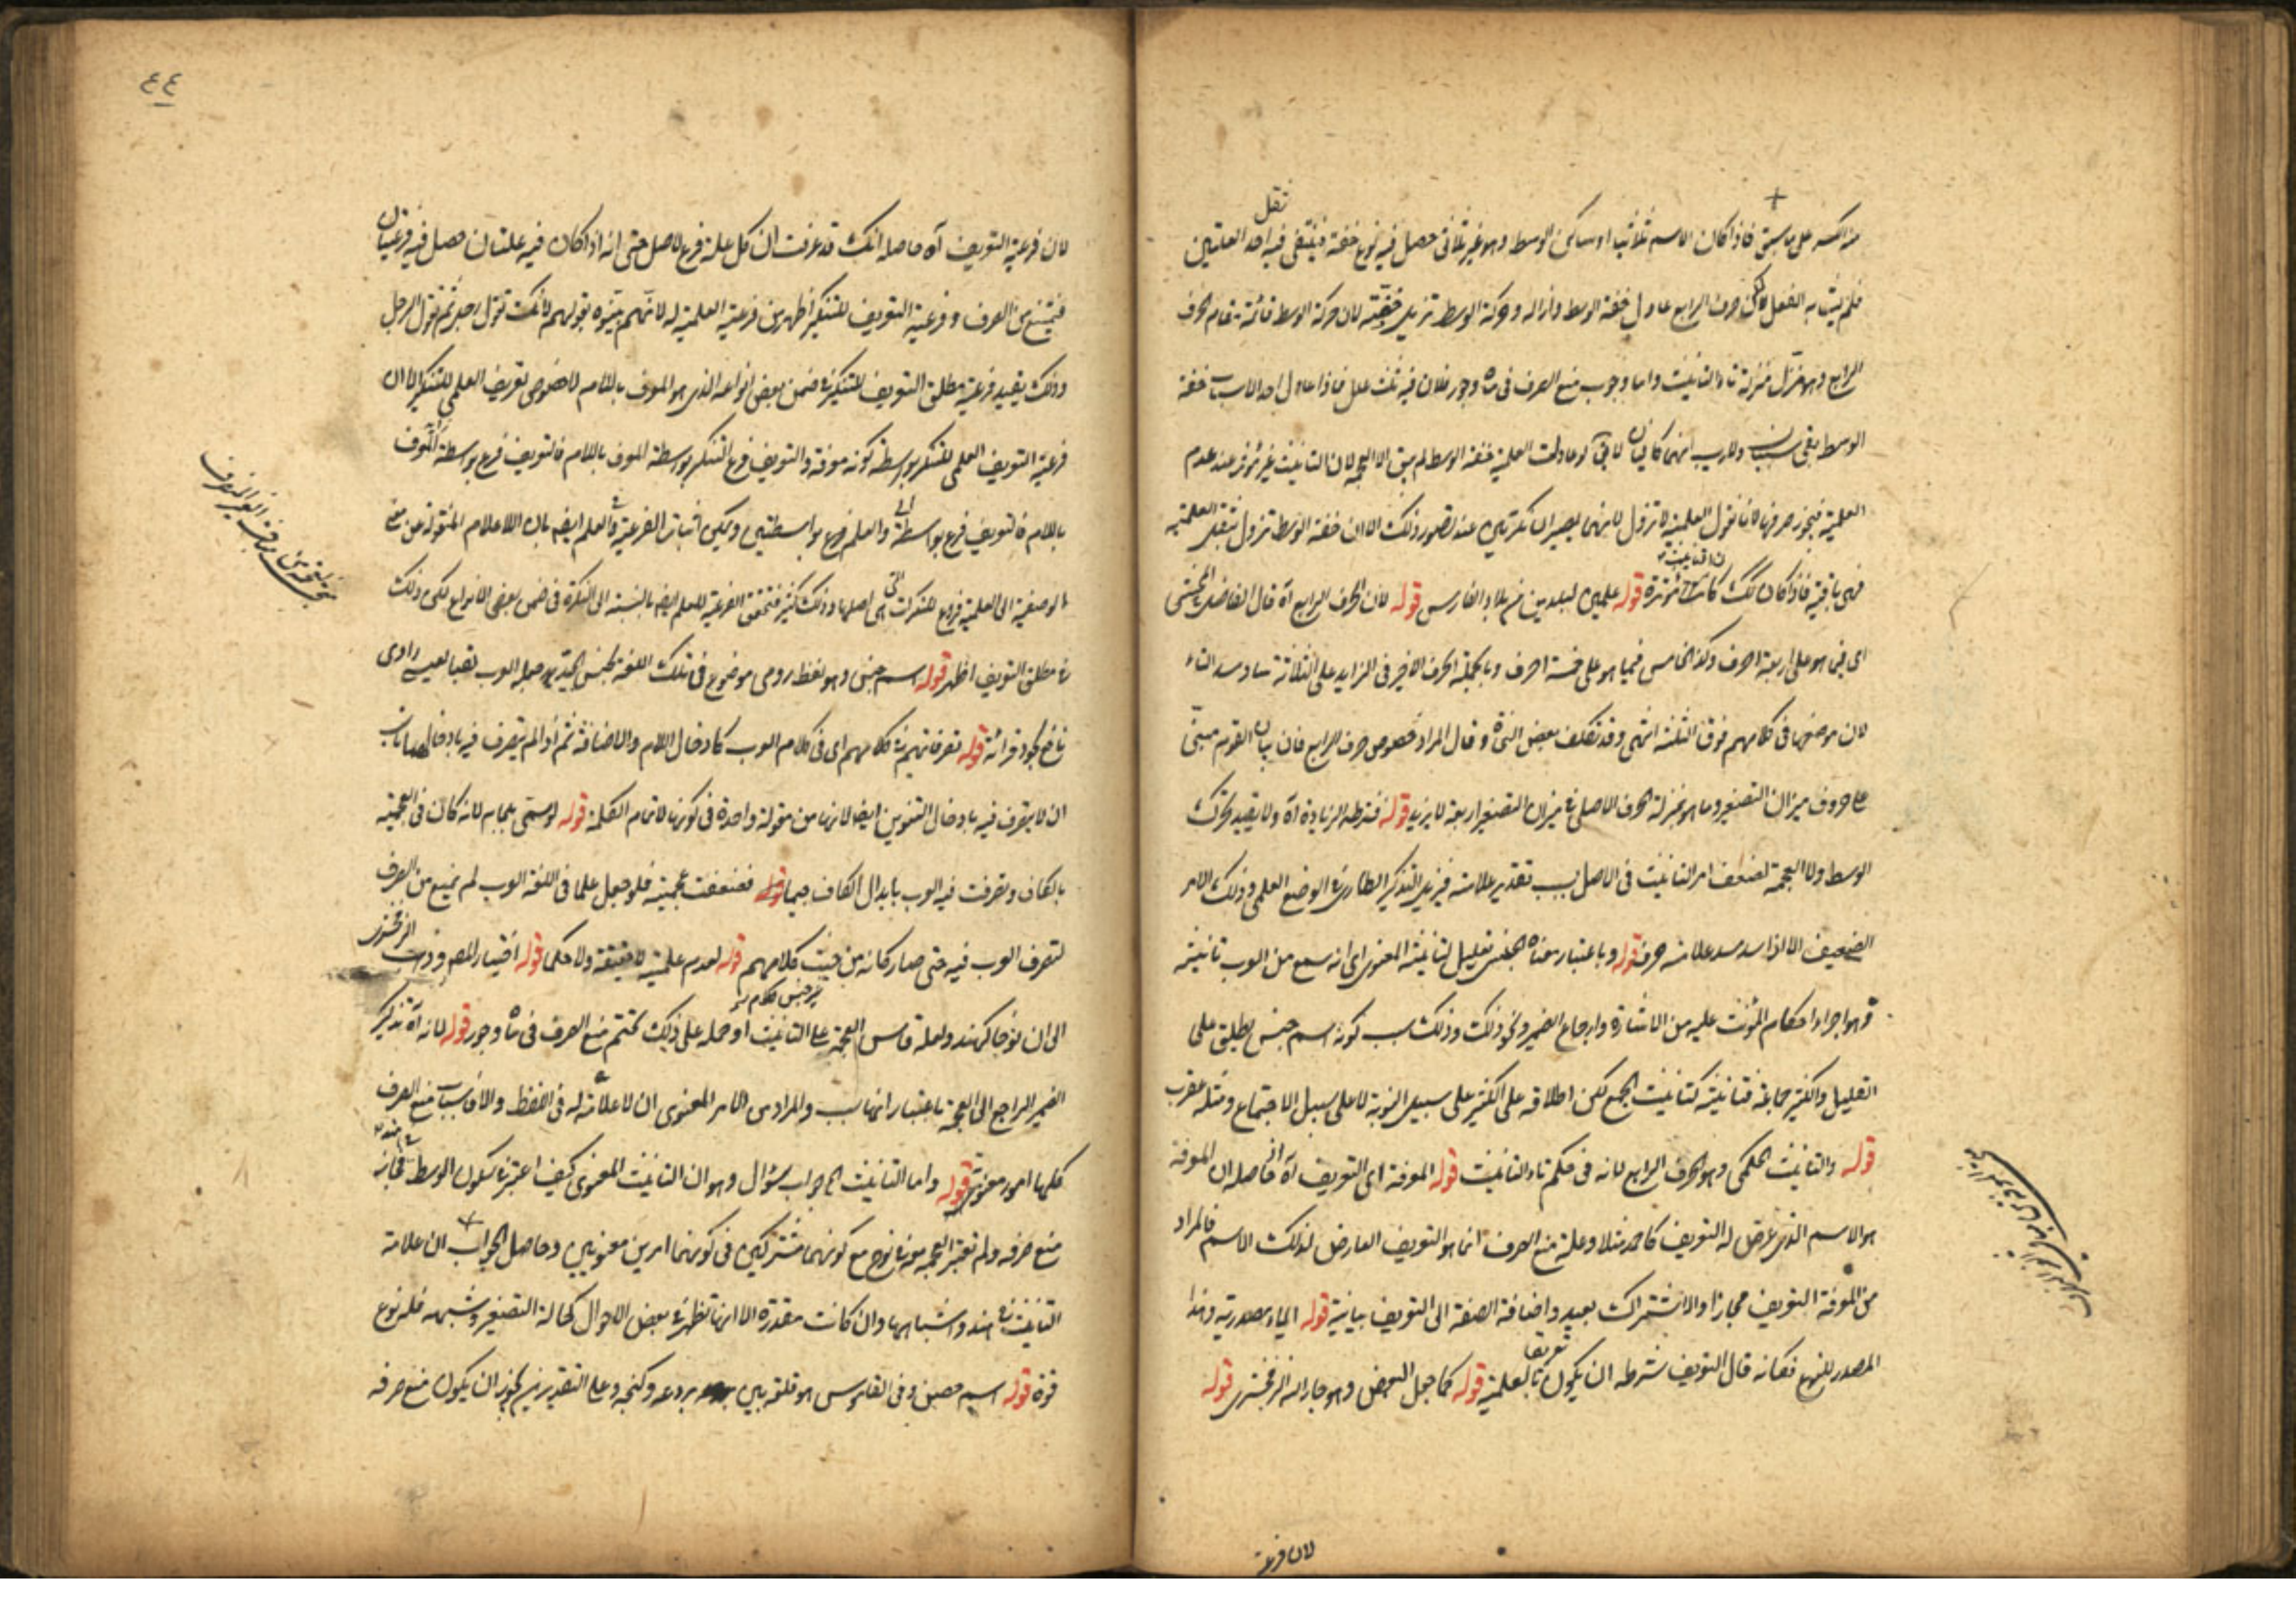 فاذا كان الاسم ثلاثيا او ساكن الوسط وهو غير ثلاثى حصل فيه نوع خفة فينتفى فيه احد العلتين
ثقل
الحرف الرابع عادل خفة الوسط وازاله وحركة الوسط تزيل خفته لان حركة الوسط قائمة مقام الحرف
الرابع وهو منزل منزلة تاء التانيث واما وجوب منع الصرف فى ماه وجور فلان فيه ثلث علل فاذا عادل احد الاسباب خفة
الوسط بقى سببان ولا ريب انهما كافيان لا يق لو عادلت العلمية خفة الوسط لم يبق الا العجمة لان التانيث غير مؤثر عند عدم
العلمية فيجوز صرفها لانا نقول العلمية لا تزول عند تصور ذلك الا ان خفة الوسط تزول بثقل العلمية
فهى باقية فاذا كان كك كانت مؤثرة قوله علمين لبلدين من بلاد الفارس قوله لان الحرف الرابع آه قال الفاضل المحشى
اى فيما هو على اربعة احرف وكذا الخامس فيما هو على خمسة احرف وبالجملة الحرف الاخير فى الزايد على الثلاثة ساد مسد التاء
لان موضعها فى كلامهم فوق الثلثة انتهى وقد تكلف بعض النحاة وقال المراد خصوص حرف الرابع فان بيان القوم مبنى
على حروف ميزان التصغير وما هو بمنزلة الحرف الاصلى فى ميزان التصغير اربعة لا يزيد قوله فشرطه الزيادة آه ولا يفيد تحرك
الوسط ولا العجمة لضعف امر التانيث فى الاصل بسبب تقدير علامته فيزيد التذكير الطارى فى الوضع العلمى وذلك الامر
الضعيف الا اذا سد مسد علامته حرف قوله وباعتبار معناه الجنسى تعليل لتانيثه المعنوى اى انه سمع من العرب تانيثه
وهو اجراء احكام المؤنث عليه من الاشارة وارجاع الضمير ونحو ذلك وذلك بسبب كونه اسم جنس يطلق على
القليل والكثير جماعة فتانيثه كتانيث الجمع لكن اطلاقه على الكثير على سبيل النوبة لا على سبيل الاجتماع ومثله عقرب
قوله والتانيث الحكمى وهو الحرف الرابع لانه فى حكم تاء التانيث قوله المعرفة اى التعريف لان آه حاصله ان المعرفة
هو الاسم الذى عرض له التعريف كاحمد مثلا وعلة منع الصرف انما هو التعريف العارض لذلك الاسم فالمراد
من المعرفة التعريف مجازا والاشتراك بعيد واضافة الصفة الى التعريف بيانية قوله الياء مصدرية وهذا
المصدر للنوع فكانه قال التعريف شرطه ان يكون تعريفا بالعلمية قوله كما جعل البعض وهو جار الله الزمخشرى قوله
لان فرعية
٤٤
لان فرعية التعريف آه حاصله انك قد عرفت ان كل علة فرع لاصل حتى انه اذا كان فيه علتان حصل فيه فرعيتان
فيمتنع من الصرف وفرعية التعريف للتنكير اظهر من فرعية العلمية له لانهم بينوه بقولهم لانك تقول رجل ثم تقول الرجل
وذلك يفيد فرعية مطلق التعريف للتنكير فى ضمن بعض انواعه الذى هو المعرف باللام لا خصوص تعريف العلمى للتنكير الا ان
فرعية التعريف العلمى للتنكير بواسطة كونه معرفة والتعريف فرع التنكير بواسطة المعرف باللام فالتعريف فرع بواسطة المعرف
باللام فالتعريف فرع بواسطة والعلم فرع بواسطتين ويمكن اثبات الفرعية فى العلم ايضا بان الاعلام المنقولة عن معنى
الوصفية الى العلمية فروع للنكرات التى هى اصلها وذلك كثير فتتحقق الفرعية للعلم ايضا بالنسبة الى النكرة فى ضمن بعض الانواع لكن ذلك
فى مطلق التعريف اظهر قوله اسم جنس وهو لفظ رومى موضوع فى تلك اللغة لجنس الجيد ثم جعله العرب لقبا لعيسى راوى
نافع لجودة قرائته قوله تصرفاتهم فى كلامهم اى فى كلام العرب كادخال اللام والاضافة ثم اذا لم يتصرف فيه بادخالهما ناسب
ان لا يتصرف فيه بادخال التنوين ايضا لانها من مقولة واحدة فى كونها لاتمام الكلمة قوله لو سمى بلجام لانه كان فى العجمية
بالكاف وتصرفت فيه العرب بابدال الكاف جيما قوله فضعفت عجميته فلو جعل علما فى اللغة العرب لم يمنع من الصرف
لتصرف العرب فيه حتى صار كانه من جنس كلامهم قوله لعدم علمية لا حقيقة ولا حكما قوله اختيار المصـ وذهب الزمخشرى
الى ان نوحا كهند ولعله قاس العجمة على التانيث او حمله على ذلك تحتم منع الصرف فى ماه وجور قوله لانه آه تذكير
الضمير الراجع الى العجمة باعتبار انها سبب والمراد من الامر المعنوى ان لا علامة له فى اللفظ والا فاسباب منع الصرف
كلها امور معنوية قوله واما التانيث الخ جواب سؤال وهو ان التانيث المعنوى كيف اعتبر فى سكون الوسط
منع صرفه ولم تعتبر العجمة فى نوح مع كونهما مشتركين فى كونهما امرين معنويين وحاصل الجواب ان علامة
التانيث فى هند واشباهها وان كانت مقدرة الا انها تظهر فى بعض الاحوال كحالة التصغير وشبهه فله نوع
قوة قوله اسم حصن وفى القاموس هو قلعة بين بردعة وكنجه وعلى التقديرين يجوز ان يكون منع صرفه